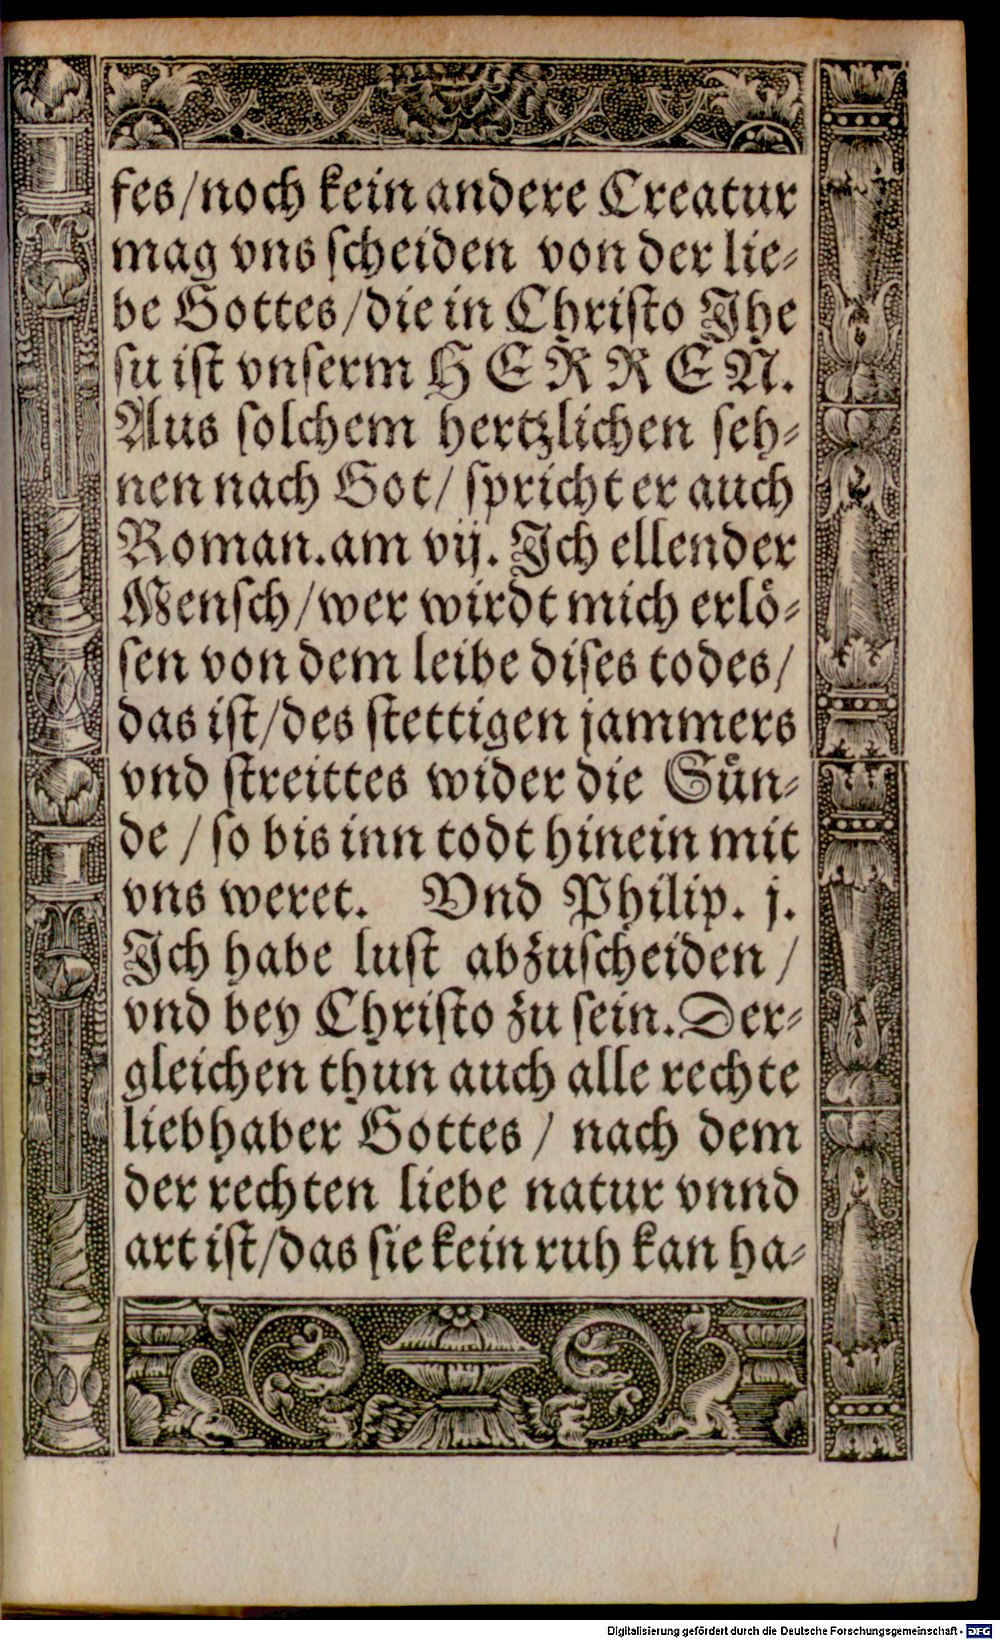 fes/noch kein andere Creatur
mag vns scheiden von der lie-
be Gottes/die in Christo Jhe
su ist vnserm HERREN.
Aus solchem hertzlichen seh-
nen nach Got/ spricht er auch
Roman.am vij. Ich ellender
Mensch/wer wirdt mich erlö-
sen von dem leibe dises todes/
das ist/des stettigen jammers
vnd streittes wider die Sün-
de / so bis inn todt hinein mit
vns weret. Vnd Philip. j.
Ich habe lust abzuscheiden /
vnd bey Christo zu sein. Der-
gleichen thun auch alle rechte
liebhaber Gottes / nach dem
der rechten liebe natur vnnd
art ist/das sie kein ruh kan ha-
Digitalisierung gefördert durch die Deutsche Forschungsgemeinschaft - DFG